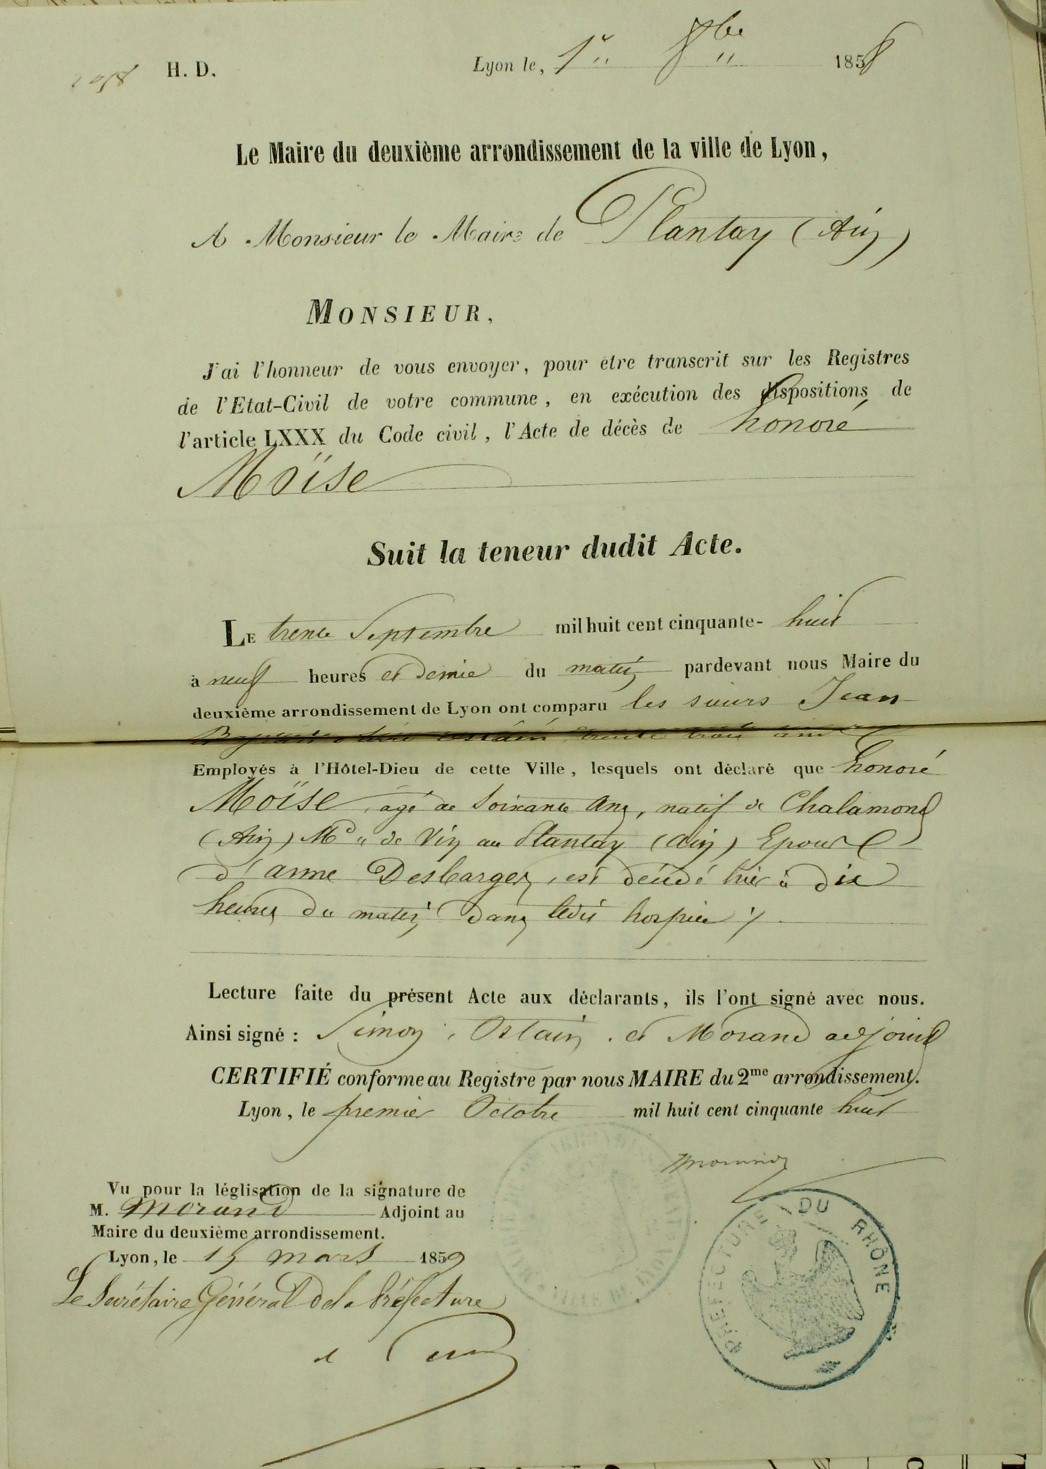 H. D.
Lyon le, 1er 8bre 1858
Le Maire du deuxième arrondissement de la ville de Lyon,
A Monsieur le Maire de Plantay (Ain)
MONSIEUR,
J'ai l'honneur de vous envoyer, pour être transcrit sur les Registres
de l'Etat-Civil de votre commune, en exécution des dispositions de
l'article LXXX du Code civil, l'Acte de décès de honoré
Moïse
Suit la teneur dudit Acte.
LE trente Septembre mil huit cent cinquante- huit
à neuf heures et demie du matin pardevant nous Maire du
deuxième arrondissement de Lyon ont comparu les sieurs Jean
trente trois ans
Employés à l'Hôtel-Dieu de cette Ville, lesquels ont déclaré que honoré
Moïse, agé de Soixante ans, natif de Chalamond
(Ain) Md de Vin au Plantay (Ain) Epoux
d'anne Desbarges, est décédé hier à dix
heures du matin dans ledit hospice ./.
Lecture faite du présent Acte aux déclarants, ils l'ont signé avec nous.
Ainsi signé : Simon, Ostain, et Morand adjoint
CERTIFIÉ conforme au Registre par nous MAIRE du 2me arrondissement.
Lyon, le premier Octobre mil huit cent cinquante huit
Morand
Vu pour la législation de la signature de
M. Morand Adjoint au
Maire du deuxième arrondissement.
Lyon, le 15 mars 1859
Le Secrétaire Général de la Préfecture
PREFECTURE DU RHÔNE